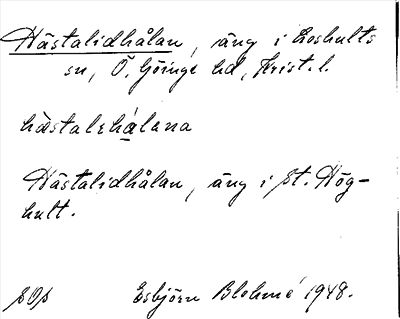 Hästalidhålan, äng i Loshults
sn, Ö. Göinge hd, Krist. l.
hästalehálena
Hästalidhålan, äng i St. Hög-
hult.
Esbjörn Blohmé 1948.